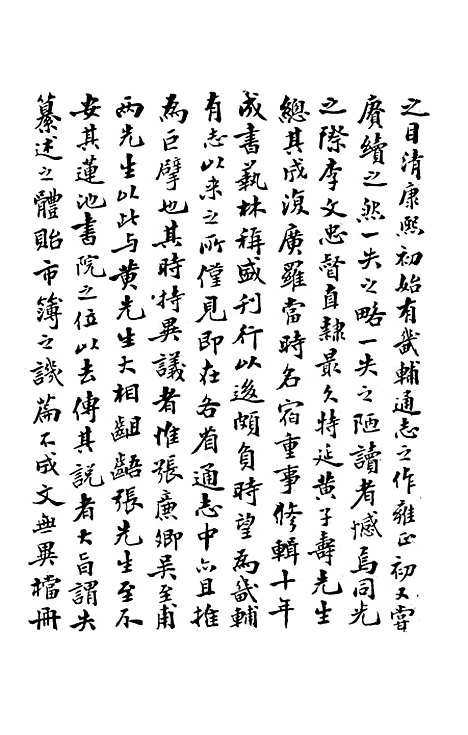 之目清康熙初始有畿輔通志之作雍正初又嘗
賡續之然一失之略一失之陋讀者憾焉同光
之際李文忠督直隸最久特延黄子壽先生
總其成復廣羅當時名宿重事修輯十年
成書藝林稱盛刊行以逡頗負時望為畿輔
有志以来之所僅見即在各省通志中亦且推
為巨擘也其時持異議者惟張廉卿吴至甫
两先生以此与黄先生大相齟齬張先生至不
安其蓮池書院之位以去傳其説者大旨謂失
纂述之體貽市簿之譏篇不成文無異檔冊